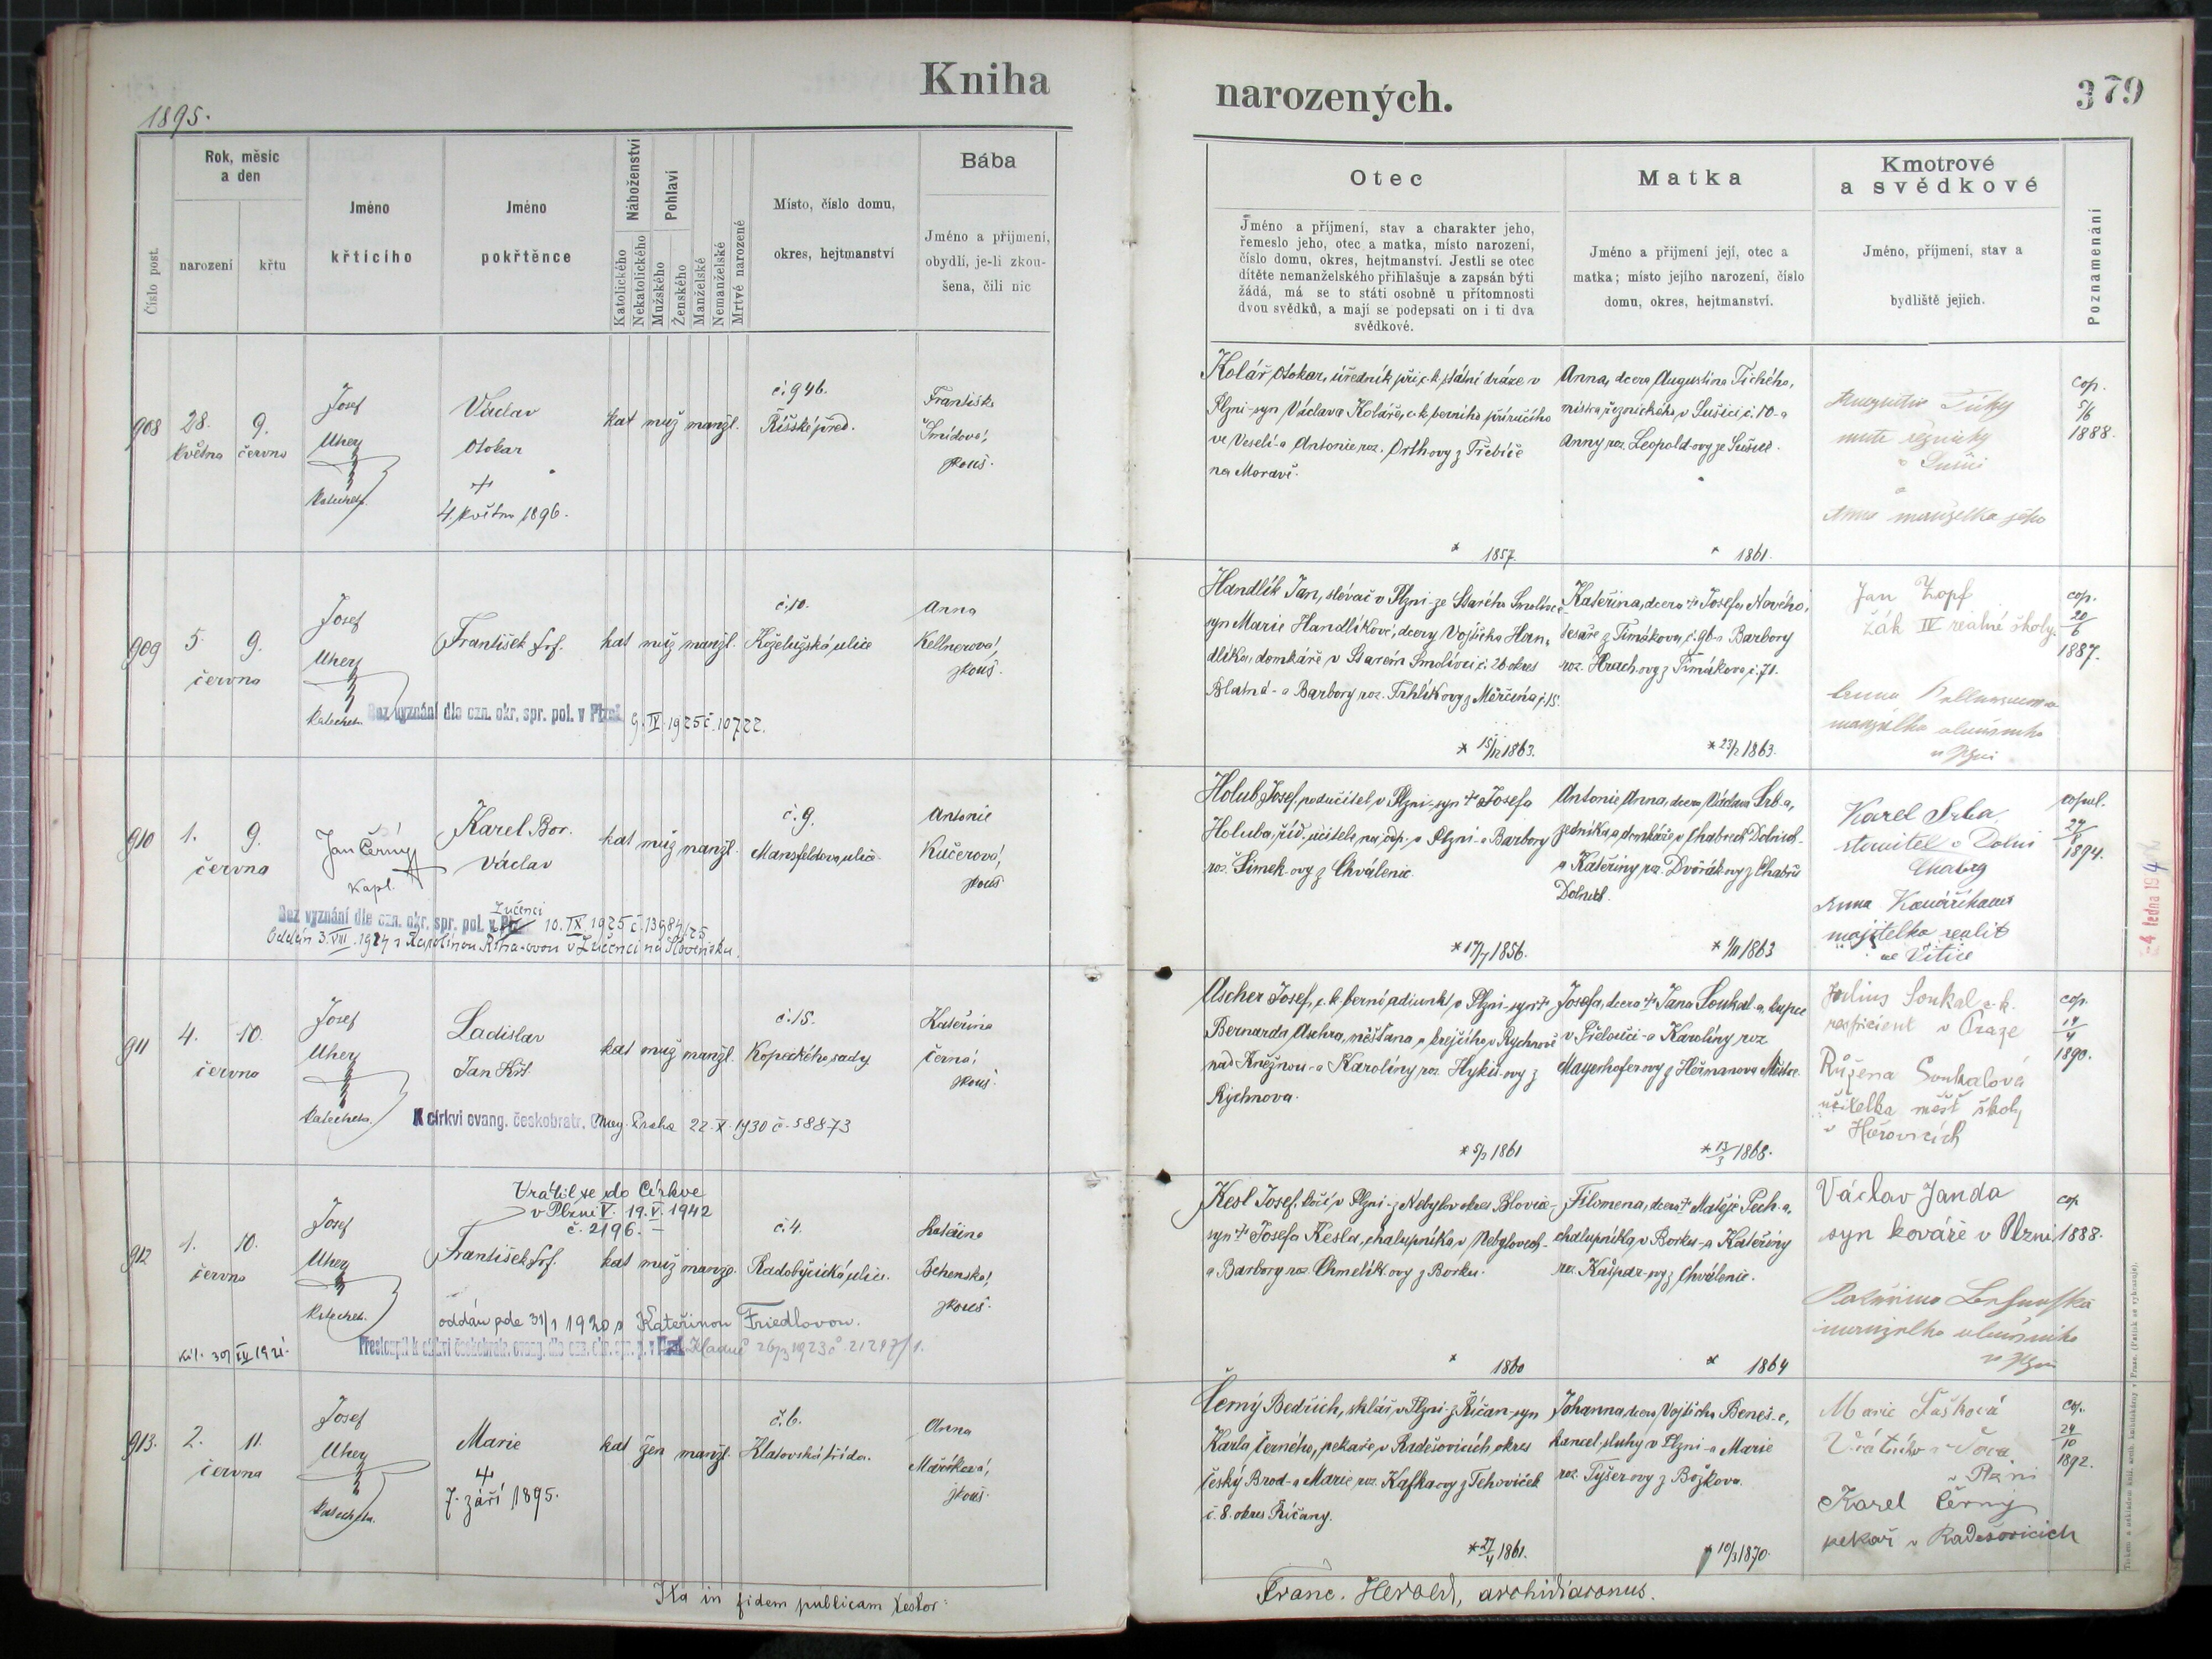 Kniha
1895.
Číslo post.
Rok, měsíc
a den
narození
křtu
Jméno
křticího
Jméno
pokřtěnce
Náboženství
Katolického
Nekatolického
Pohlaví
Mužského
Ženského
Manželské
Nemanželské
Mrtvé narozené
Místo, číslo domu,
okres, hejtmanství
Bába
Jméno a přijmení,
obydlí, je-li zkou-
šena, čili nic
908
28.
května
9.
června
Josef
Uhey
Katecheta
Václav
Otokar
+
4. května 1896.
kat muž manžl.
č. 946.
Říšské před.
Františka
Šmídová,
zkouš.
909
5.
9.
června
Josef
Uhey
Katecheta
František Srf.
Bez vyznání dle ozn. okr. spr. pol. v Plzni 9. IV. 1925 č. 10722.
kat muž manžl.
č. 10.
Koželužská ulice
Anna
Kellnerová,
zkouš.
910
1.
9.
června
Jan Černý
Kapl.
Karel Bor.
Václav
kat muž manžl.
č. 9.
Mansfeldova ulice
Antonie
Kučerová,
zkouš.
Lučenci
Bez vyznání dle ozn. okr. spr. pol. v 10. IX. 1925 č. 13984/25
Oddán 3. VIII. 1924 s Karolinou v Lučenci na Slovensku.
911
4.
10.
června
Josef
Uhey
Katecheta
Ladislav
Jan Křt.
kat muž manžl.
č. 15.
Kopeckého sady
Kateřina
Černá,
zkouš.
K církvi evang. českobratr. Praha 22. X. 1930 č. 58873
912
1.
10.
června
Josef
Uhey
Katechet.
Vrátil se do Církve
v Plzni V. 19. V. 1942
č. 2196. –
František Srf.
kat muž manže.
č. 4.
Radobyčická ulice.
Kateřina
zkouš.
oddán zde 31/1 1920 s Kateřinou Friedlovou.
Přestoupil k církvi českobratr. evang. dle ozn. okr. spr. p. v Kladně 26/3 1923 č. 21297/1.
913.
2.
11.
června
Josef
Uhey
Katecheta.
Marie
+
7. září 1895.
kat žen manžl.
č. 6.
Klatovská třída.
Anna
zkouš.
Ita in fidem publicam testor:
narozených.
379
Otec
Jméno a příjmení, stav a charakter jeho,
řemeslo jeho, otec a matka, místo narození,
číslo domu, okres, hejtmanství. Jestli se otec
dítěte nemanželského přihlašuje a zapsán býti
žádá, má se to státi osobně u přítomnosti
dvou svědků, a mají se podepsati on i ti dva
svědkové.
Matka
Jméno a přijmení její, otec a
matka; místo jejího narození, číslo
domu, okres, hejtmanství.
Kmotrové
a svědkové
Jméno, příjmení, stav a
bydliště jejich.
Poznamenání
Kolář Otokar, úředník při c. k. státní dráze v
Plzni - syn Václava Koláře, c. k. berního příručího
ve Veselí - a Antonie roz. Orthovy z Třebíče
na Moravě.
* 1857.
Anna, dcera Augustina Tichého,
mistra řeznického v Sušici č. 10 - a
Anny roz. Leopold-ovy ze Sušice.
* 1861.
Augustin Tichý
mistr řeznický
v Sušici
a
Anna manželka jeho
cop.
5/6
1888.
Handlík Jan, slévač v Plzni - ze Starého Smolivce
syn Marie Handlíkové, dcery Vojtěcha Han-
dlíka, domkáře v Starém Smolivci č. 26 okres
Blatná - a Barbory roz. Trhlíkovy z Měrčína č. 15.
* 15/12 1863.
Kateřina, dcera + Josefa Nového,
tesaře z Timákova, č. 96 - a Barbory
roz. Hrachovy z Timákova č. 71.
* 23/2 1863.
Jan Zopf
žák IV reálné školy.
Anna
manželka
v Plzni
cop.
20/6
1887.
Holub Josef, podučitel v Plzni - syn + Josefa
Holuba, říd. učitele na odp. v Plzni - a Barbory
roz. Šimek-ovy z Chválenic.
* 17/7 1856.
Antonie Anna, dcera Václava Srb-a,
zedníka a domkáře v Chabrech Dolních -
a Kateřiny roz. Dvořák-ovy z Chabrů
Dolních.
1863
Karel Srba,
stavitel v Dolní
Chabry
Anna
majitelka realit
ve Vitici
copul.
27/8
1894.
-4. ledna 194
Ascher Josef, c. k. berní adjunkt v Plzni - syn +
Bernarda Aschra, měšťana a krejčího v Rychnově
nad Kněžnou - a Karoliny roz. Hykš-ovy z
Rychnova.
* 5/2 1861
Josefa, dcera + Jana Soukal-a, kupce
v Přelouči - a Karolíny roz.
Mayerhoferovy z Heřmanova Městce.
* 13/3 1868.
Julius Soukal c. k.
respicient v Praze
Růžena Soukalová
učitelka měšť. školy
v Hořovicích
cop.
14/4
1890.
Kesl Josef, kočí v Plzni - z Nebylov okres Blovice -
syn + Josefa Kesla, chalupníka v Nebylovech -
a Barbory roz. Chmelík-ovy z Borku.
* 1860
Filomena, dcera + Matěje Pech-a,
chalupníka, v Borku - a Kateřiny
roz. Kašpar-ovy z Chválenic.
* 1864
Václav Janda
syn kováře v Plzni
Kateřina
manželka
v Plzni
cop.
1888.
Černý Bedřich, sklář v Plzni - z Říčan - syn
Karla Černého, pekaře, v Radešovicích okres
Český Brod - a Marie roz. Kafkaovy z Tehoviček
č. 8. okres Říčany.
* 27/4 1861.
Johanna, dcera Vojtěcha Beneš-e,
kancel. sluhy v Plzni - a Marie
roz. Tyšerovy z Božkova.
10/3 1870.
Marie Fašková
v Plzni
Karel Černý
pekař v Radešovicích
cop.
24/10
1892.
Franc. Herold, archidiaconus.